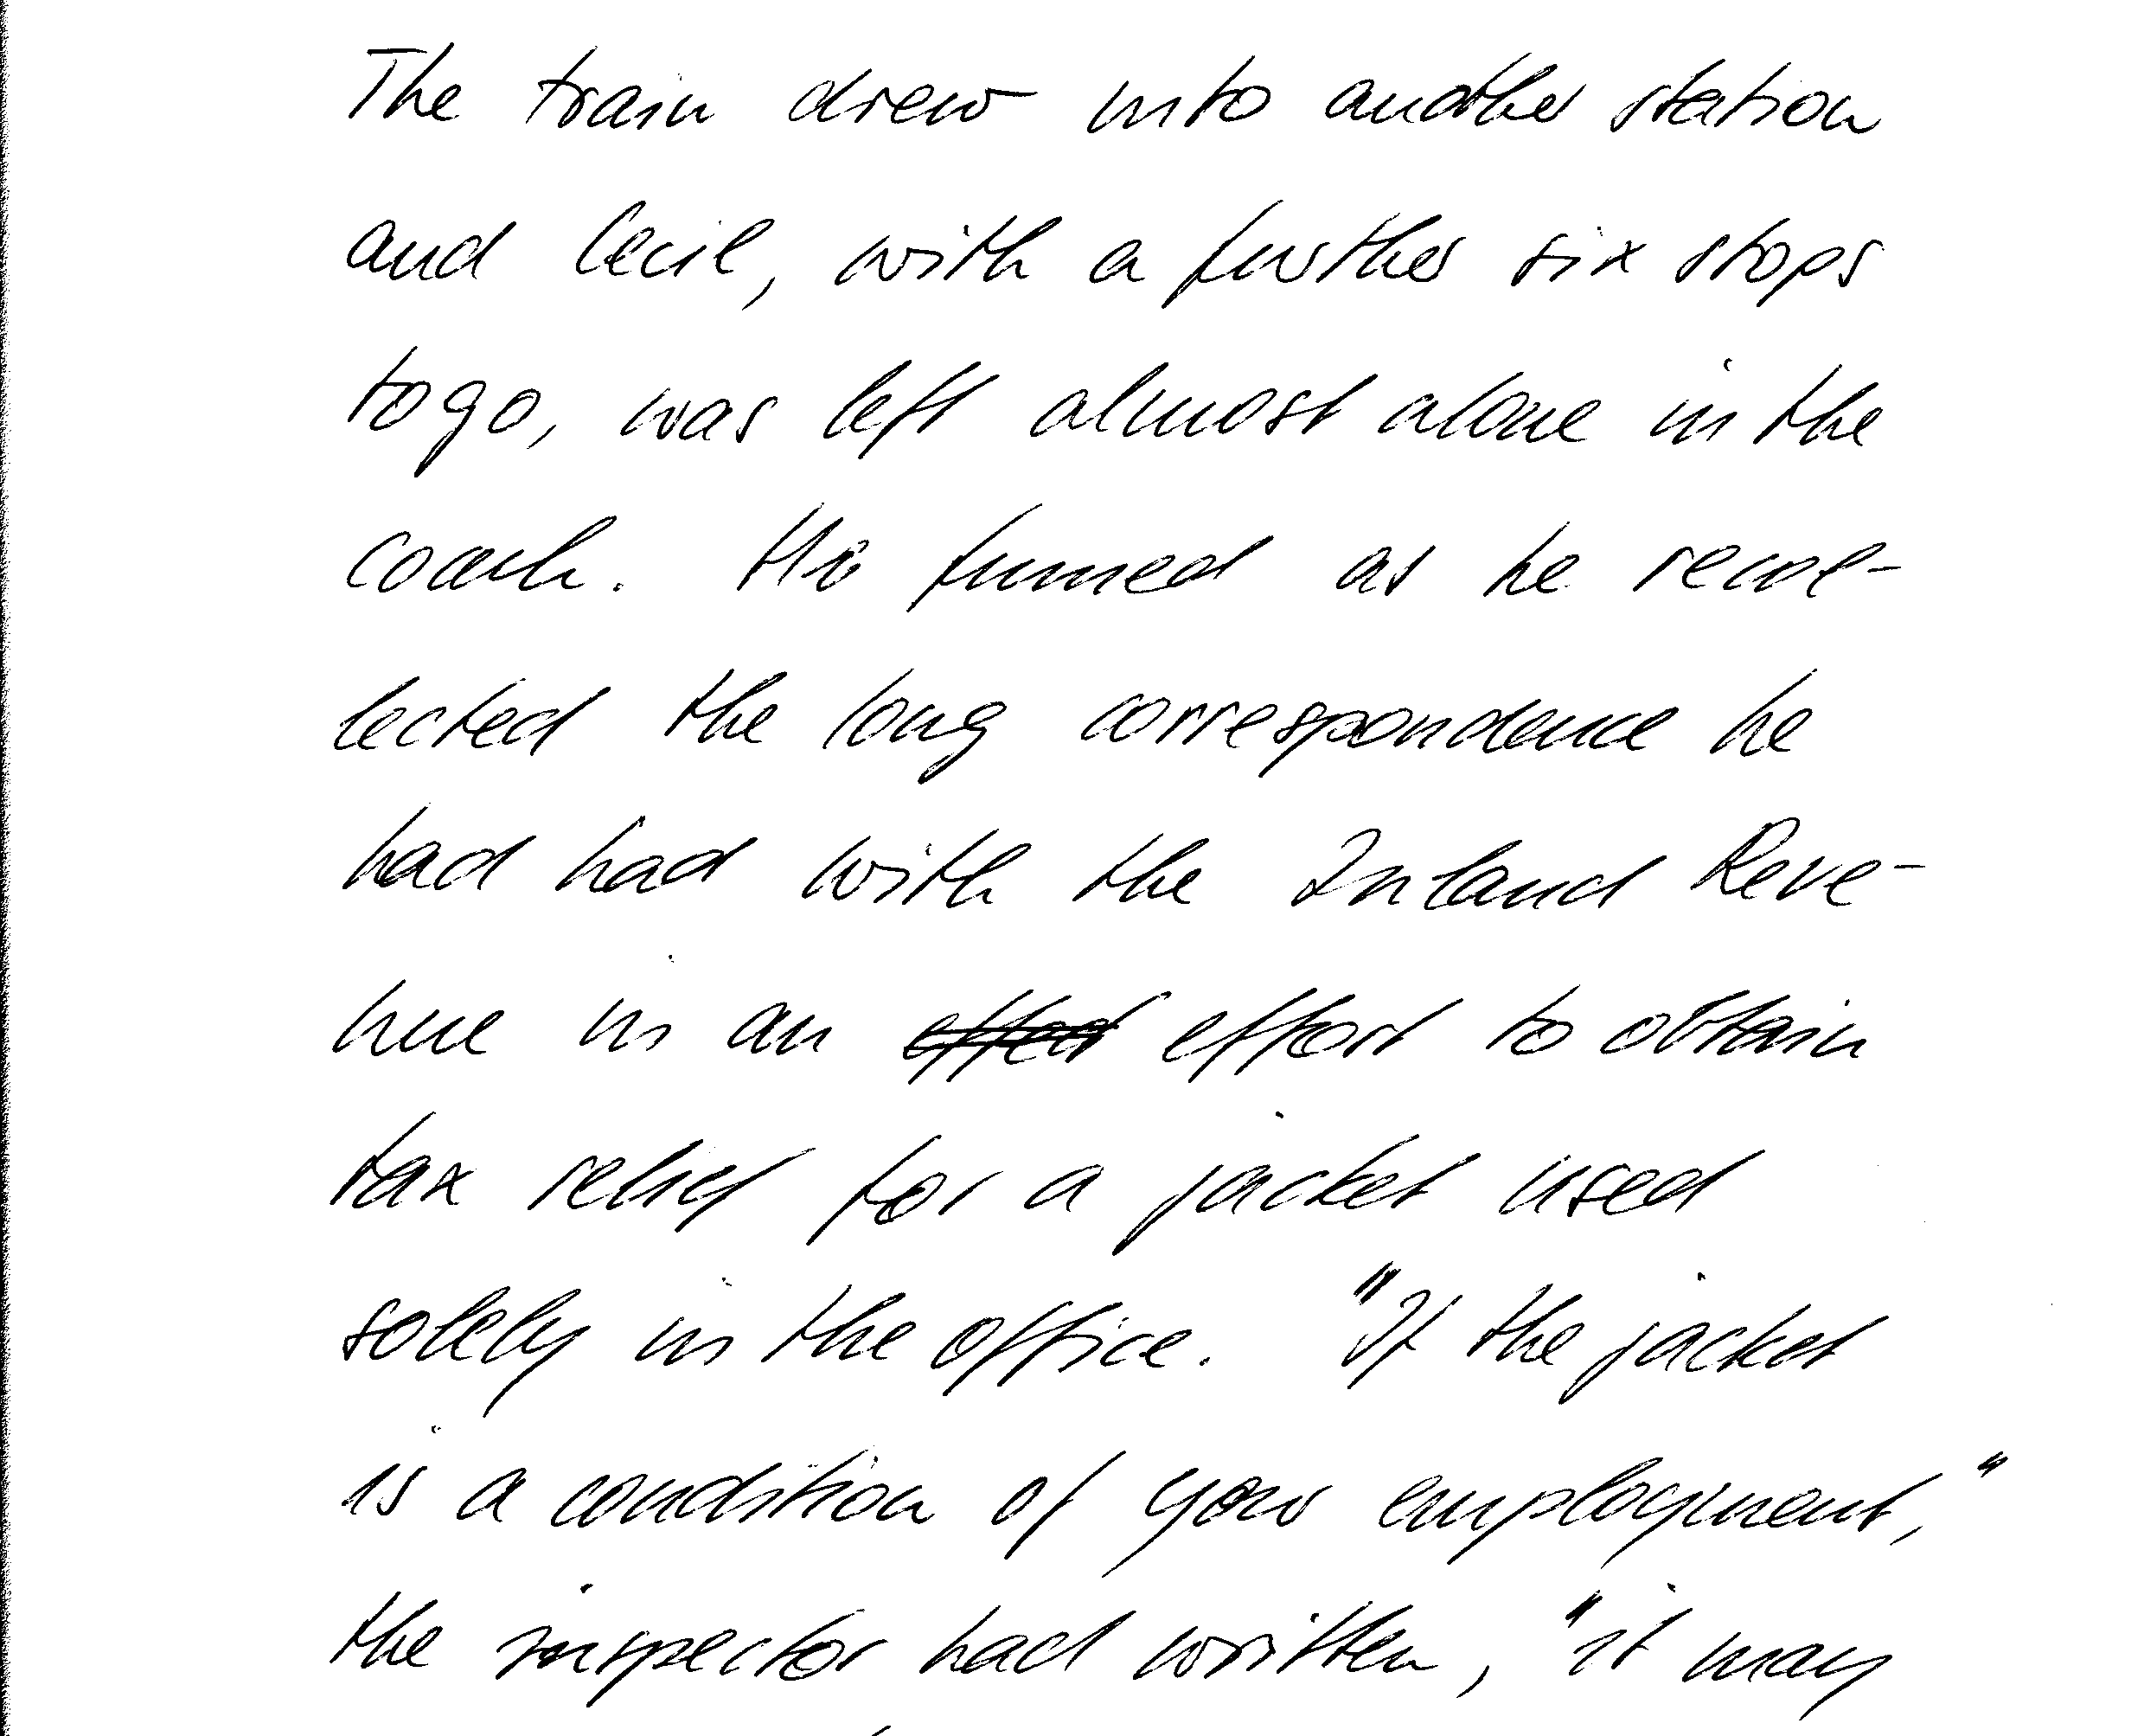 The train drew into another station
and Cecil, with a further six stops
to go, was left almost alone in the
coach. He fumed as he recol-
lected the long correspondence he
had had with the Inland Reve-
nue in an effort to obtain
tax relief for a jacket used
solely in the office. "If the jacket
is a condition of your employment,"
the inspector had written, "it may